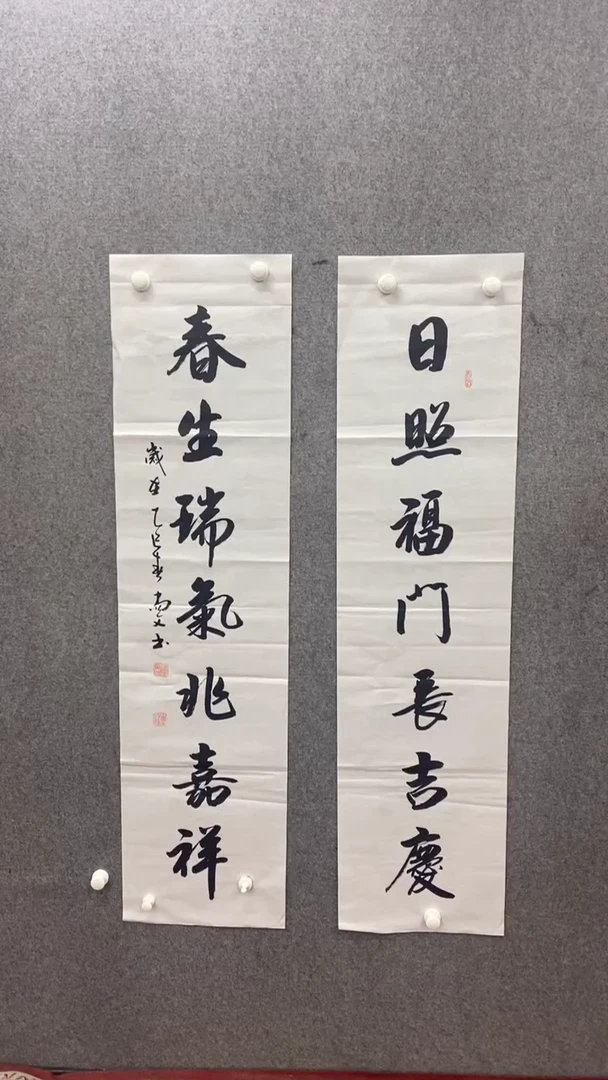 日照福門長吉慶
春生瑞氣兆嘉祥
歲在乙巳春尚文書